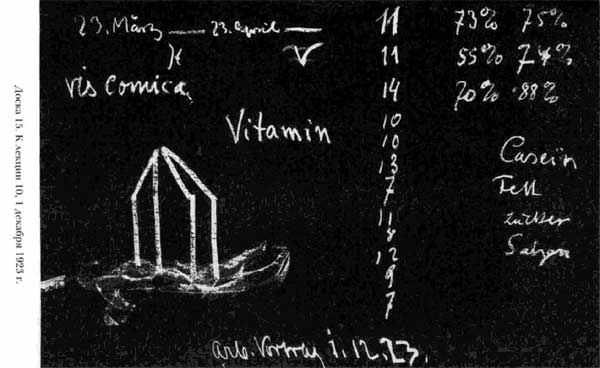 Доска 15. К лекции 10, 1 декабря 1923 г.
23. März — 23. April —
♓ ♈
vis comica
Vitamin
11 73% 75%
11 55% 74%
14 70% 88%
10
10
13
7
11
8
12
9
7
Caseïn
Fett
Zucker
Salzen
arb. Vortrag 1.12.23.